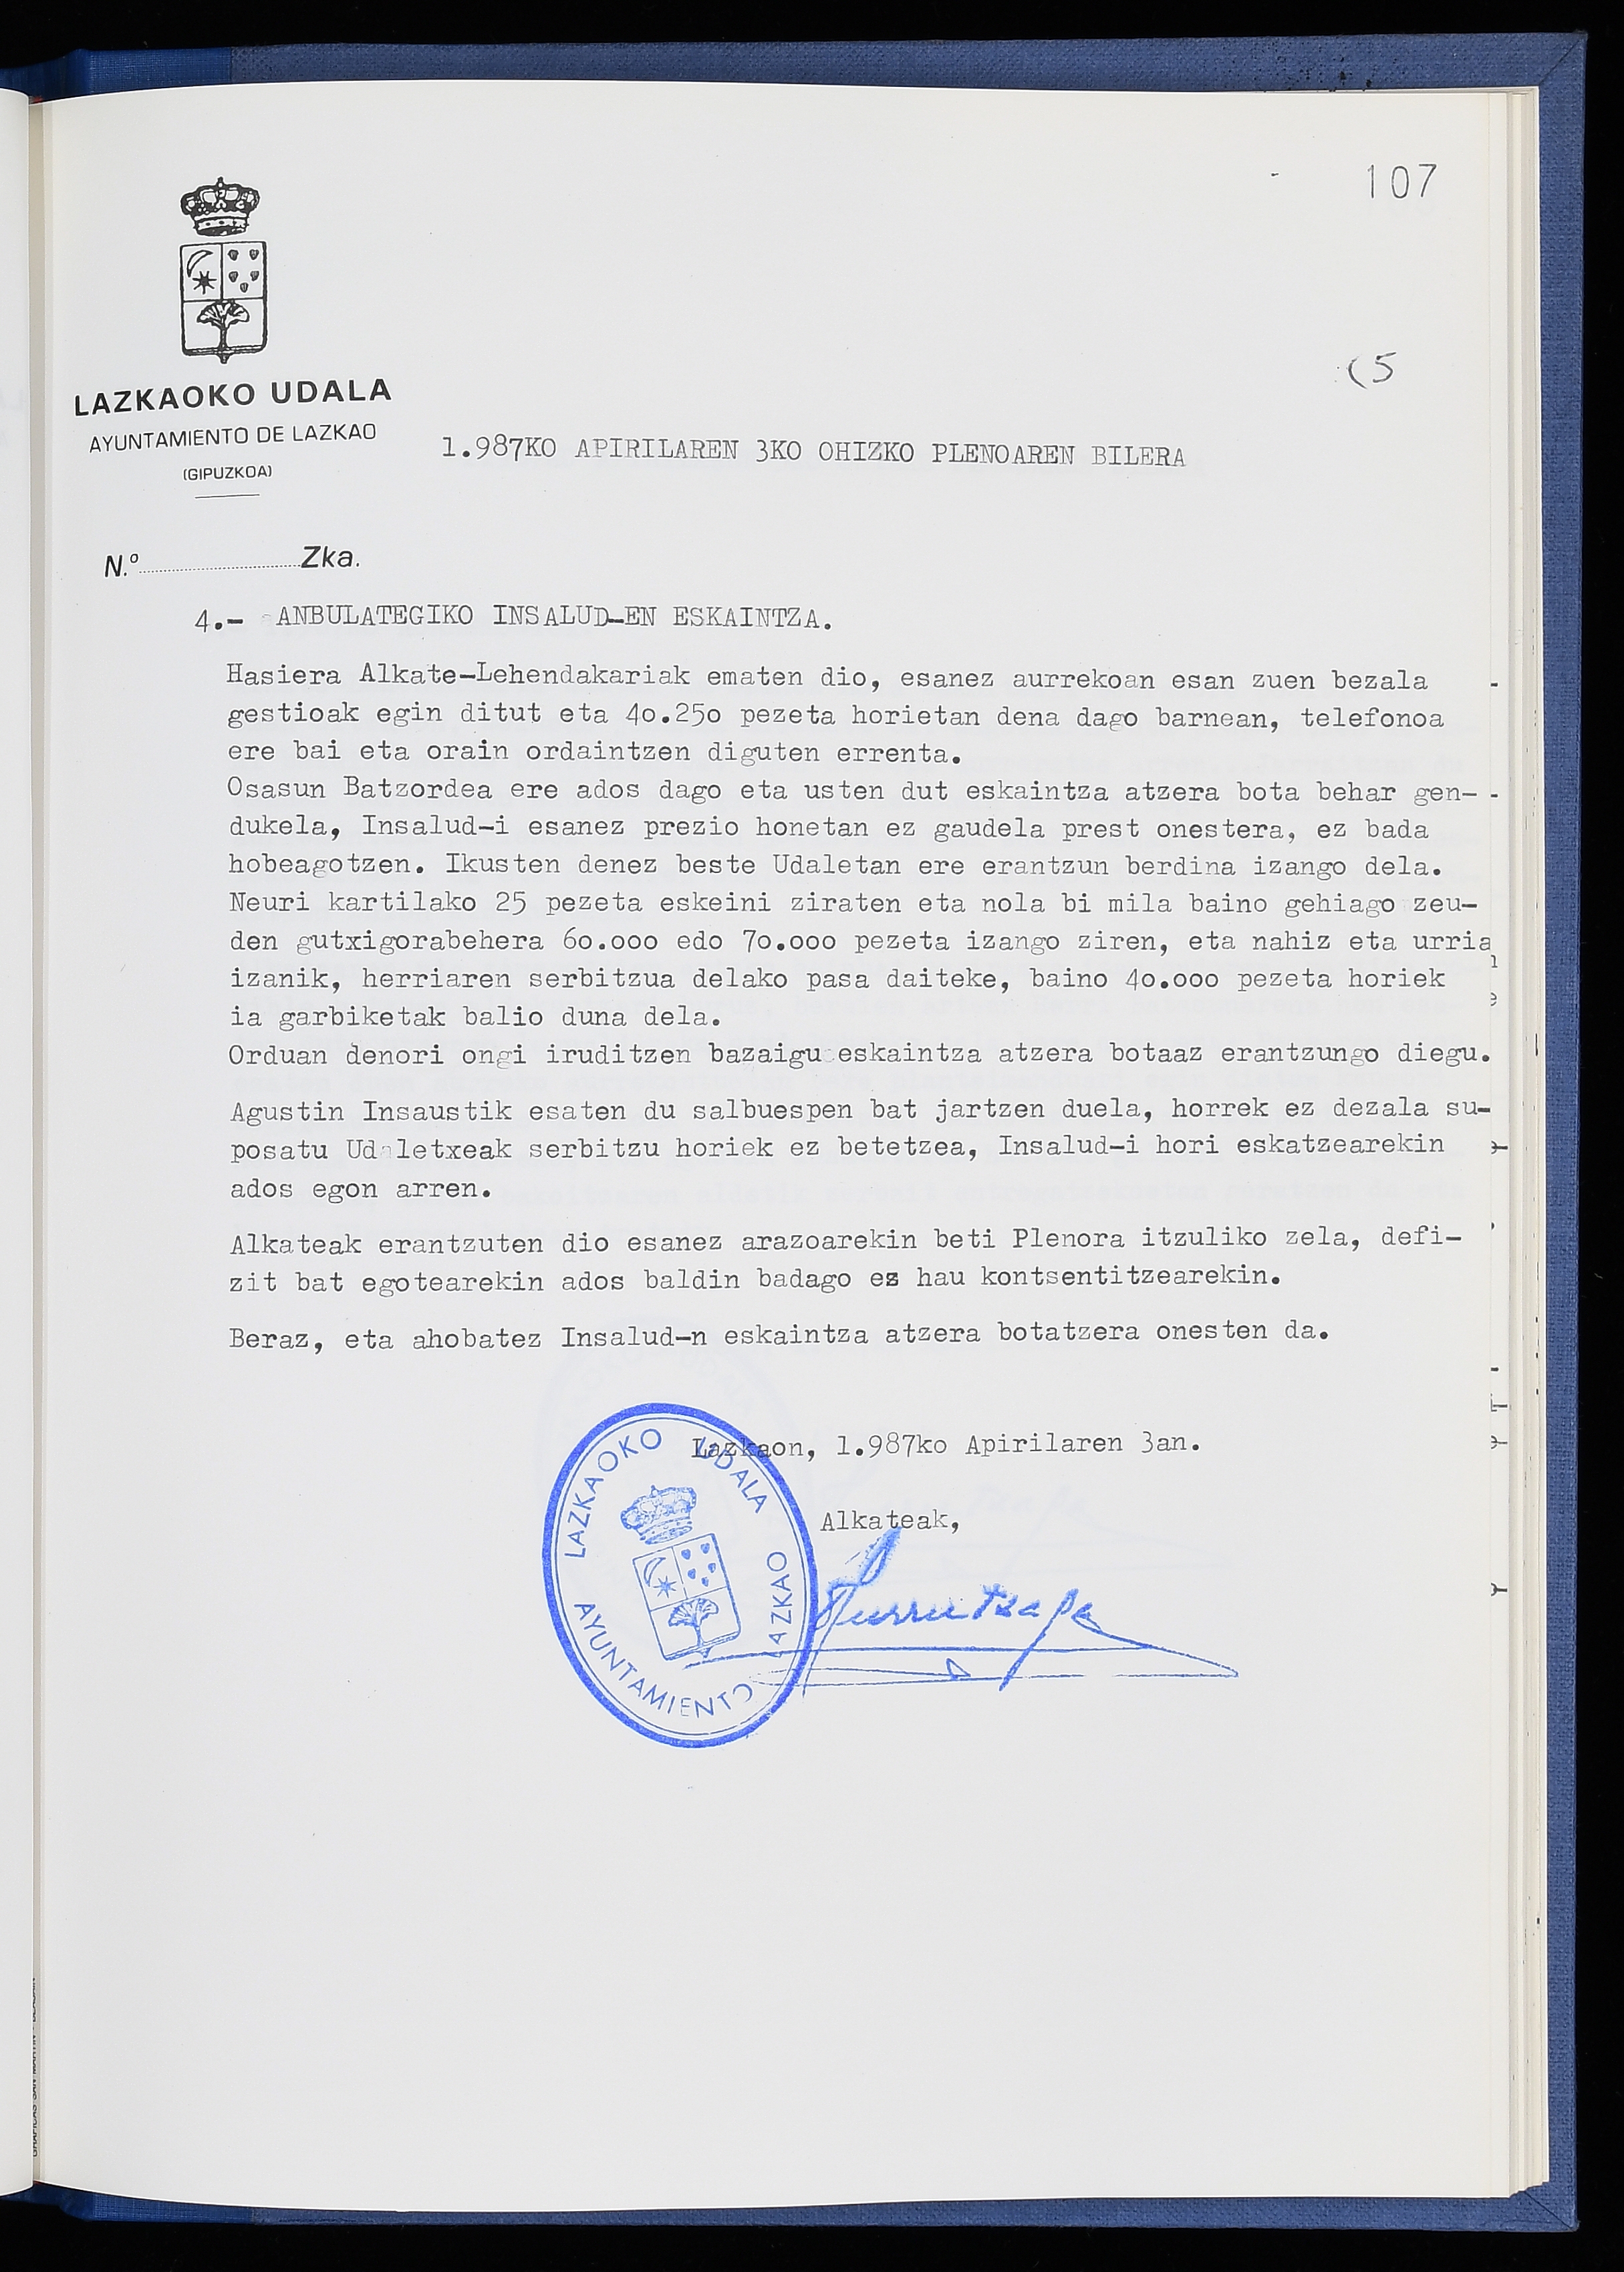 107
(5
LAZKAOKO UDALA
AYUNTAMIENTO DE LAZKAO
(GIPUZKOA)
1.987KO APIRILAREN 3KO OHIZKO PLENOAREN BILERA
N.º Zka.
4.- ANBULATEGIKO INSALUD-EN ESKAINTZA.
Hasiera Alkate-Lehendakariak ematen dio, esanez aurrekoan esan zuen bezala
gestioak egin ditut eta 4o.25o pezeta horietan dena dago barnean, telefonoa
ere bai eta orain ordaintzen diguten errenta.
Osasun Batzordea ere ados dago eta usten dut eskaintza atzera bota behar gen-
dukela, Insalud-i esanez prezio honetan ez gaudela prest onestera, ez bada
hobeagotzen. Ikusten denez beste Udaletan ere erantzun berdina izango dela.
Neuri kartilako 25 pezeta eskeini ziraten eta nola bi mila baino gehiago zeu-
den gutxigorabehera 6o.ooo edo 7o.ooo pezeta izango ziren, eta nahiz eta urria
izanik, herriaren serbitzua delako pasa daiteke, baino 4o.ooo pezeta horiek
ia garbiketak balio duna dela.
Orduan denori ongi iruditzen bazaigu eskaintza atzera botaaz erantzungo diegu.
Agustin Insaustik esaten du salbuespen bat jartzen duela, horrek ez dezala su-
posatu Udaletxeak serbitzu horiek ez betetzea, Insalud-i hori eskatzearekin
ados egon arren.
Alkateak erantzuten dio esanez arazoarekin beti Plenora itzuliko zela, defi-
zit bat egotearekin ados baldin badago es hau kontsentitzearekin.
Beraz, eta ahobatez Insalud-n eskaintza atzera botatzera onesten da.
Lazkaon, 1.987ko Apirilaren 3an.
Alkateak,
LAZKAOKO UDALA
AYUNTAMIENTO LAZKAO